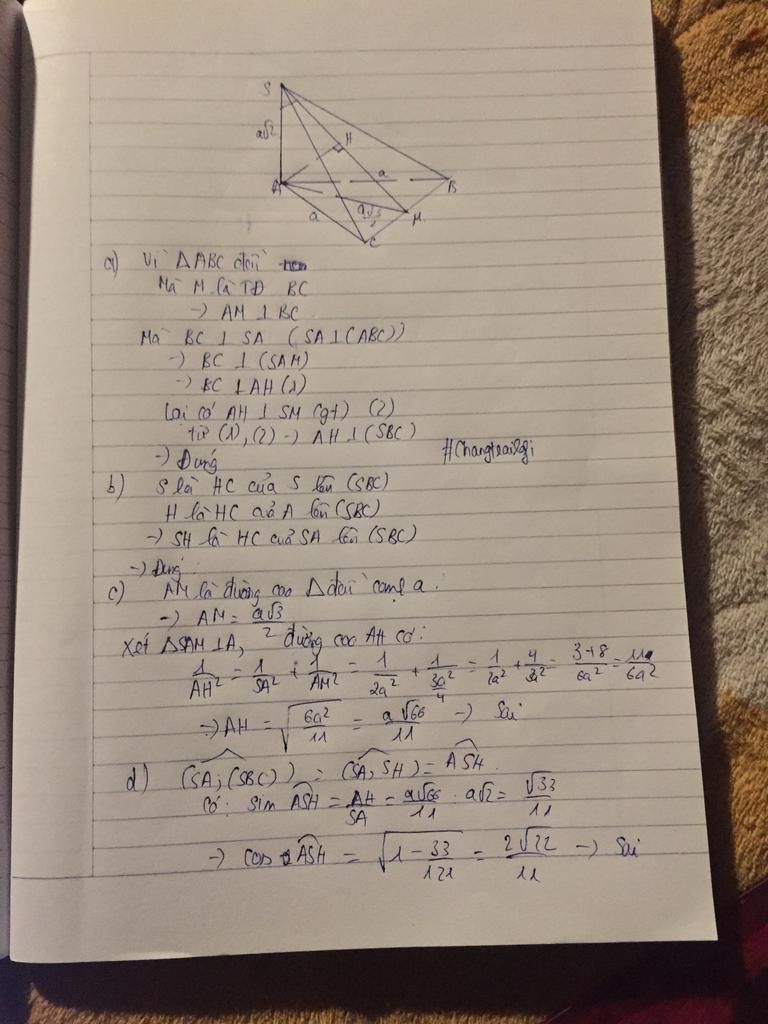 S
a√2
H
A
a
B
a
a√3/2
M
C
a) Vì ΔABC đều
Mà M là TĐ BC
→ AM ⊥ BC
Mà BC ⊥ SA (SA ⊥ (ABC))
→ BC ⊥ (SAM)
→ BC ⊥ AH (1)
Lại có AH ⊥ SM (gt) (2)
Từ (1), (2) → AH ⊥ (SBC)
→ Đúng
#Changtrailofi
b) S là HC của S lên (SBC)
H là HC của A lên (SBC)
→ SH là HC của SA lên (SBC)
→ Đúng.
c) AM là đường cao Δ đều cạnh a.
→ AM = a√3/2
Xét ΔSAM ⊥ A, đường cao AH có:
1/AH² = 1/SA² + 1/AM² = 1/2a² + 1/(3a²/4) = 1/2a² + 4/3a² = 3+8/6a² = 11/6a²
→ AH = √(6a²/11) = a√66/11 → Sai
d) (SA; (SBC)) = (SA, SH) = ASH.
Có: sin ASH = AH/SA = a√66/11 : a√2 = √33/11
→ cos ASH = √(1 - 33/121) = 2√22/11 → Sai